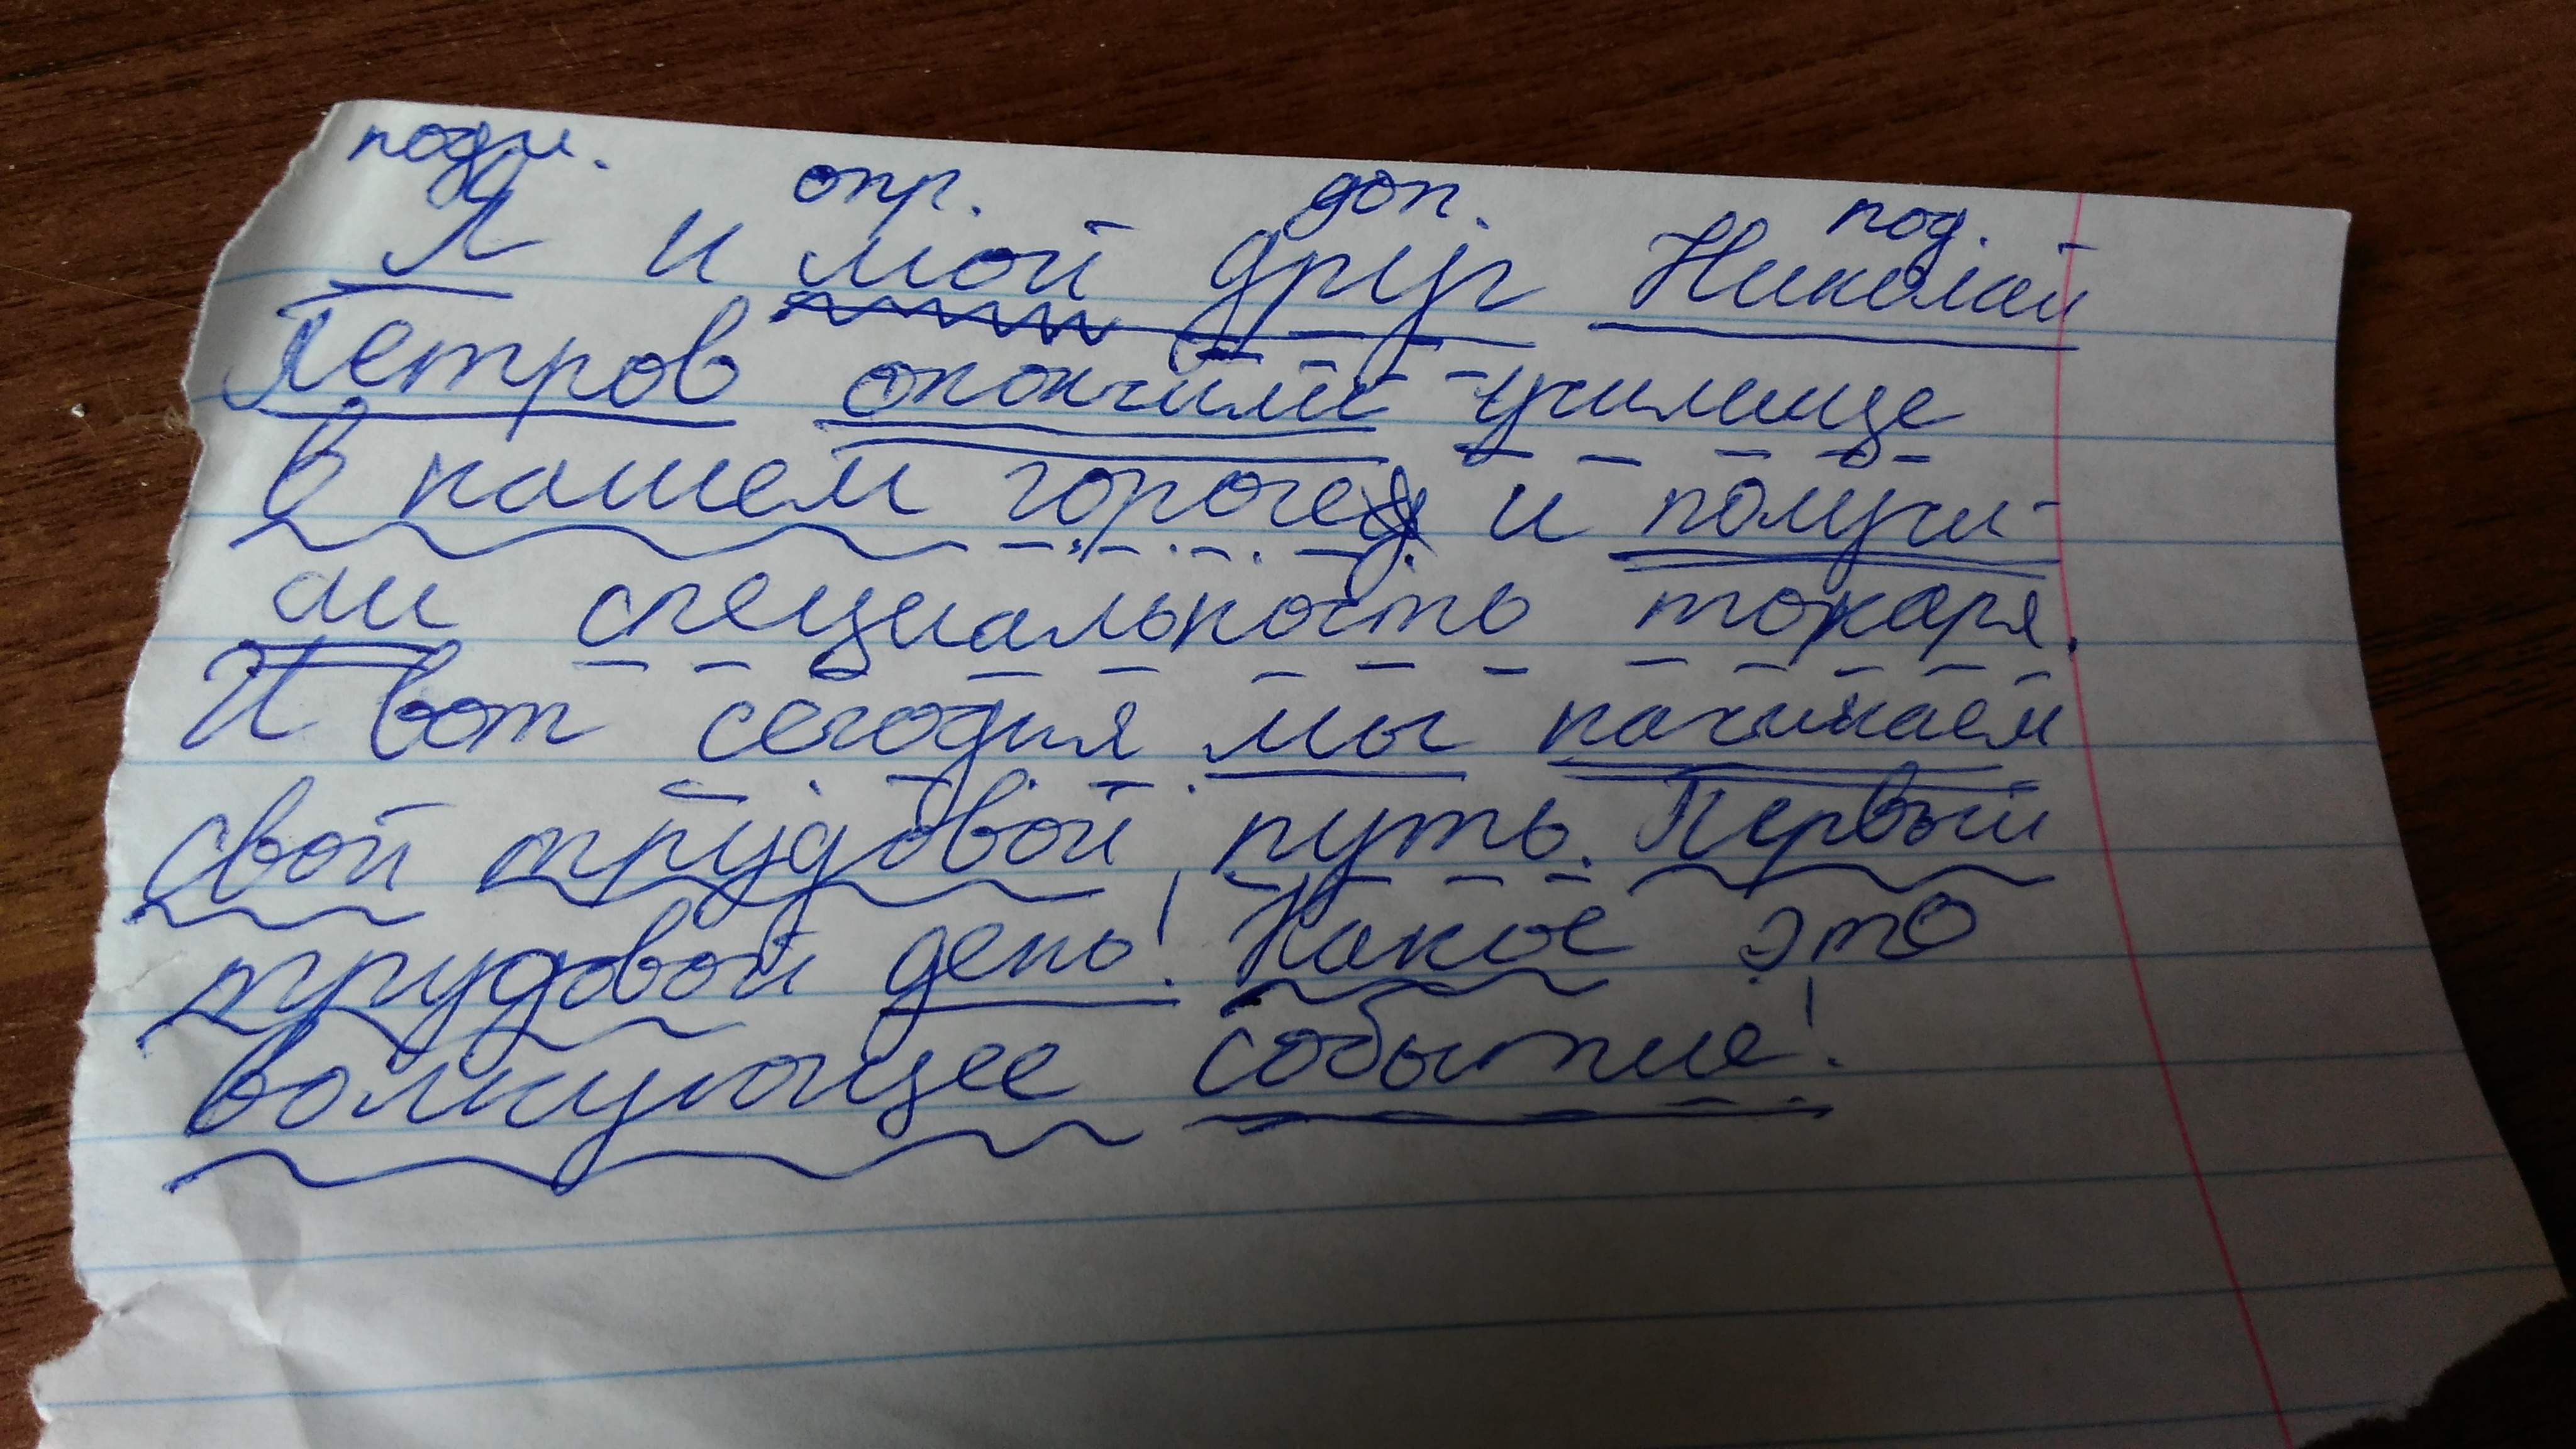 подл.
опр. доп. под.
Я и мой друг Николай
Петров окончили училище
в нашем городе и получи-
ли специальность токаря.
И вот сегодня мы начинаем
свой трудовой путь. Первый
трудовой день! Какое это
волнующее событие!